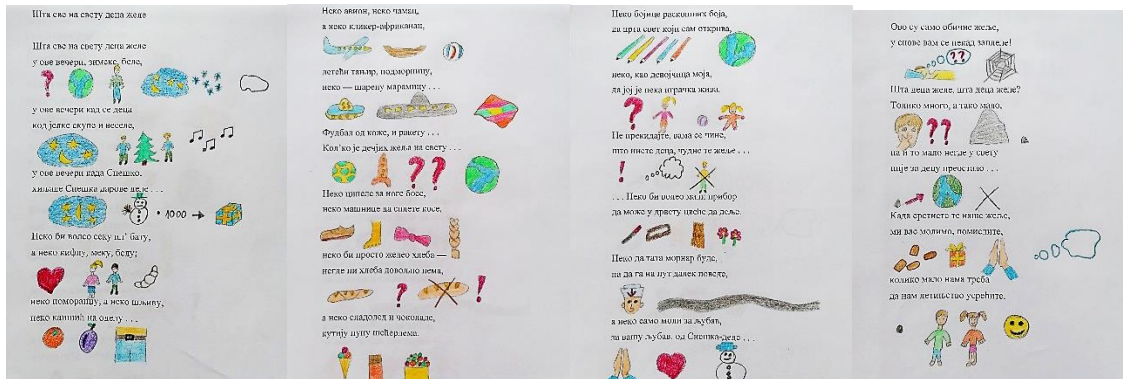 Шта све на свету деца желе
Шта све на свету деца желе
у ове вечери, зимске, беле,
у ове вечери кад се деца
код јелке скупе и веселе,
у ове вечери када Снешко,
хиљаде Снешка дарове деле . . .
Неко би волео секу ил' бату,
а неко кифлу, меку, белу;
неко поморанџу, а неко шљиву,
неко капшић на оделу . . .
Неко авион, неко чамац,
а неко кликер-африканац,
летећи тањир, подморницу,
неко — шарену марамицу . . .
Фудбал од коже, и ракету . . .
Кол'ко је дечјих жеља на свету . . .
Неко ципеле за ноге босе,
неко машнице да сплете косе,
неко би просто желео хлеба —
негде ни хлеба довољно нема,
а неко сладолед и чоколаде,
кутију пуну шећерлема.
Неко бојице раскошних боја,
да црта свет који сам открива,
неко, као девојчица моја,
да јој је нека играчка жива.
Не прекидајте, вама се чине,
што нисте деца, чудне те жеље . . .
. . . Неко би волео прибор
да може у дрвету цвеће да деље.
Неко да тата морнар буде,
па да га на пут далек поведе,
а неко само моли за љубав,
за вашу љубав, од Снешка-деде . . .
1000
Ово су само обичне жеље,
у снове вам се некад заплеле!
Шта деца желе, шта деца желе?
Толико много, а тако мало,
па и то мало негде у свету
није за децу преостало . . .
Када сретнете те наше жеље,
ми вас молимо, помислите,
колико мало нама треба
да нам детињство усрећите.